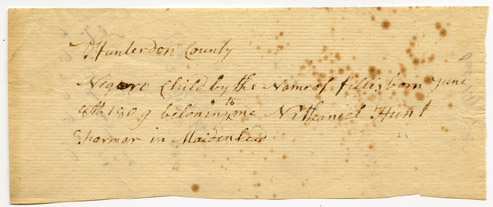 Hunterdon County
Negro Child by the Name of fillis born June
4th 1809 beloning to me Nathaniel Hunt
Pharmar in Maidenhead